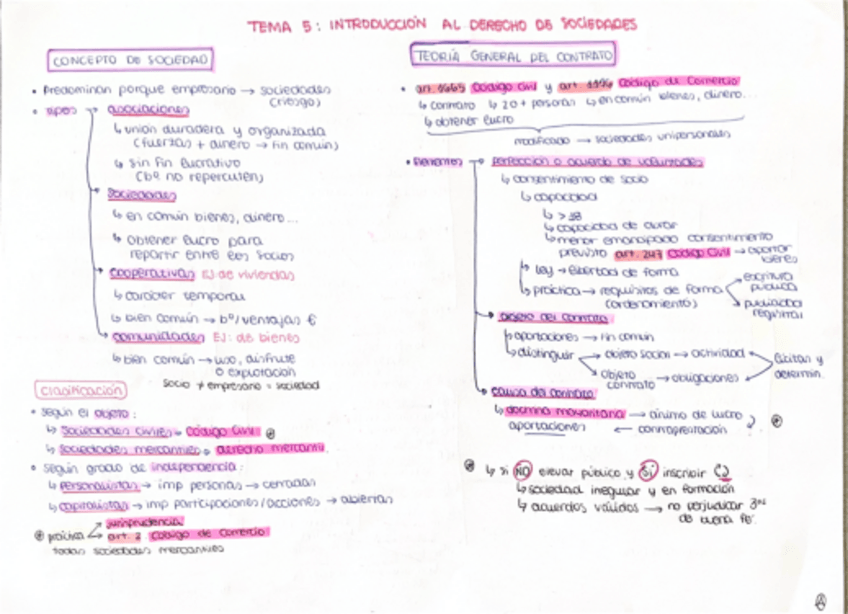 TEMA 5: INTRODUCCIÓN AL DERECHO DE SOCIEDADES
CONCEPTO DE SOCIEDAD
• Predominan porque empresario → sociedades
(riesgo)
• tipos → asociaciones
↳ unión duradera y organizada
(fuerzas + dinero → fin común)
↳ sin fin lucrativo
(bº no repercuten)
sociedades
↳ en común bienes, dinero...
↳ obtener lucro para
repartir entre los socios
cooperativas EJ: de viviendas
↳ carácter temporal
↳ bien común → bº/ventajas €
comunidades EJ: de bienes
↳ bien común → uso, disfrute
o explotación
socio ≠ empresario = sociedad
Clasificación
• según el objeto:
↳ Sociedades civiles = Código Civil ⊛
↳ sociedades mercantiles = derecho mercantil
• según grado de independencia:
↳ Personalistas → imp personas → cerradas
↳ capitalistas → imp participaciones/acciones → abiertas
⊛ práctica jurisprudencia
art. 2 Código de Comercio
todas sociedades mercantiles
TEORÍA GENERAL DEL CONTRATO
• art. 1665 Código Civil y art. 116 Código de Comercio
↳ contrato ↳ 2 o + personas ↳ en común bienes, dinero...
↳ obtener lucro
modificado → sociedades unipersonales
• Elementos → perfección o acuerdo de voluntades
↳ consentimiento de socio
↳ capacidad
↳ > 18
↳ capacidad de obrar
↳ menor emancipado consentimiento
previsto art. 247 Código Civil → aportar
bienes
↳ ley → libertad de forma
↳ práctica → requisitos de forma
(ordenamiento)
escritura
pública
publicidad
registral
objeto del contrato:
↳ aportaciones → fin común
↳ distinguir objeto social → actividad
objeto
contrato → obligaciones
lícitas y
determin.
causa del contrato:
↳ doctrina mayoritaria → ánimo de lucro ⊛
aportaciones ← contraprestación
⊛ ↳ si NO elevar público y SI inscribir
↳ sociedad irregular y en formación
↳ acuerdos válidos → no perjudicar 3ºs
de buena fe.